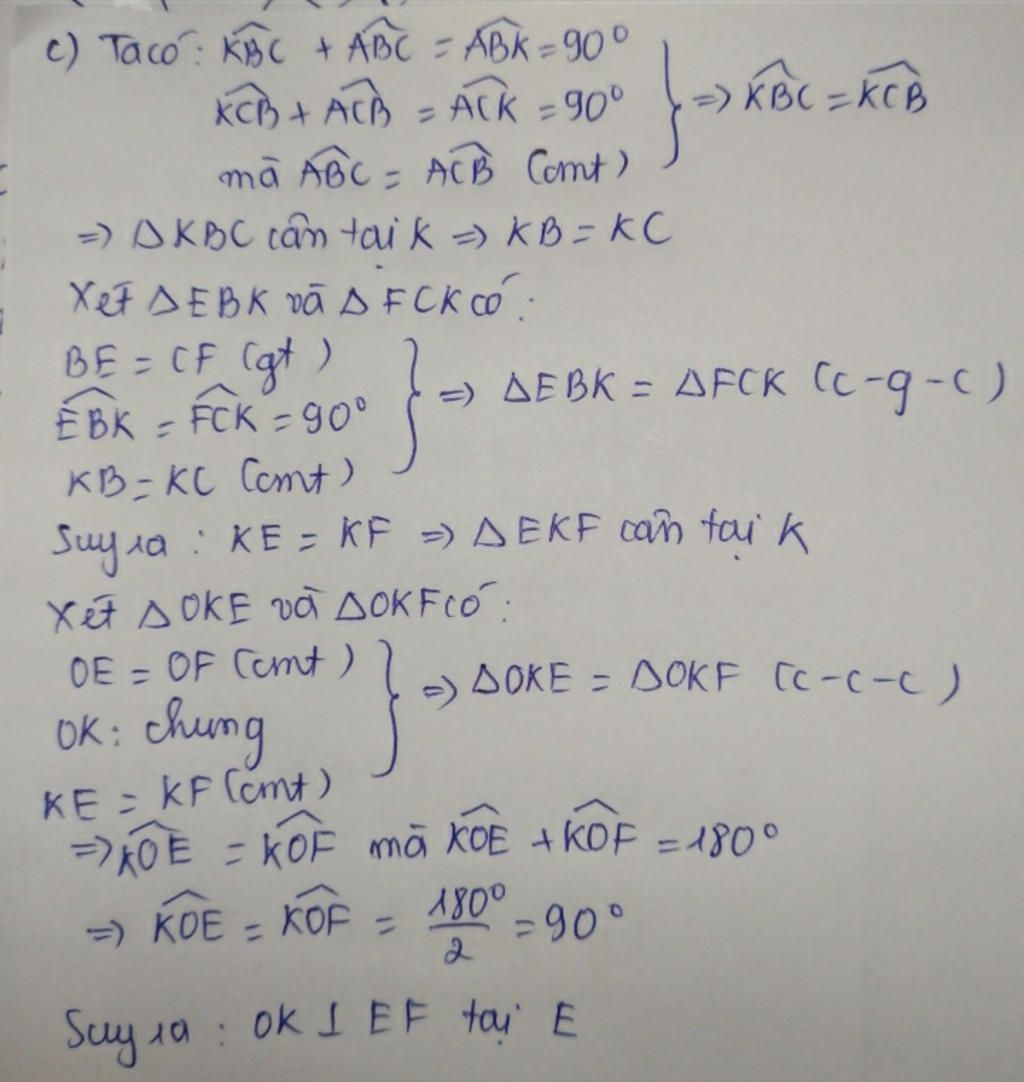 c) Ta có: K̂BC + ÂBC = ÂBK = 90°
K̂CB + ÂCB = ÂCK = 90° } => K̂BC = K̂CB
mà ÂBC = ÂCB (cmt)
=> ΔKBC cân tại K => KB = KC
Xét ΔEBK và ΔFCK có:
BE = CF (gt)
ÊBK = F̂CK = 90° } => ΔEBK = ΔFCK (c-g-c)
KB = KC (cmt)
Suy ra: KE = KF => ΔEKF cân tại K
Xét ΔOKE và ΔOKF có:
OE = OF (cmt)
OK: chung } => ΔOKE = ΔOKF (c-c-c)
KE = KF (cmt)
=> K̂OE = K̂OF mà K̂OE + K̂OF = 180°
=> K̂OE = K̂OF = 180°/2 = 90°
Suy ra: OK ⊥ EF tại E